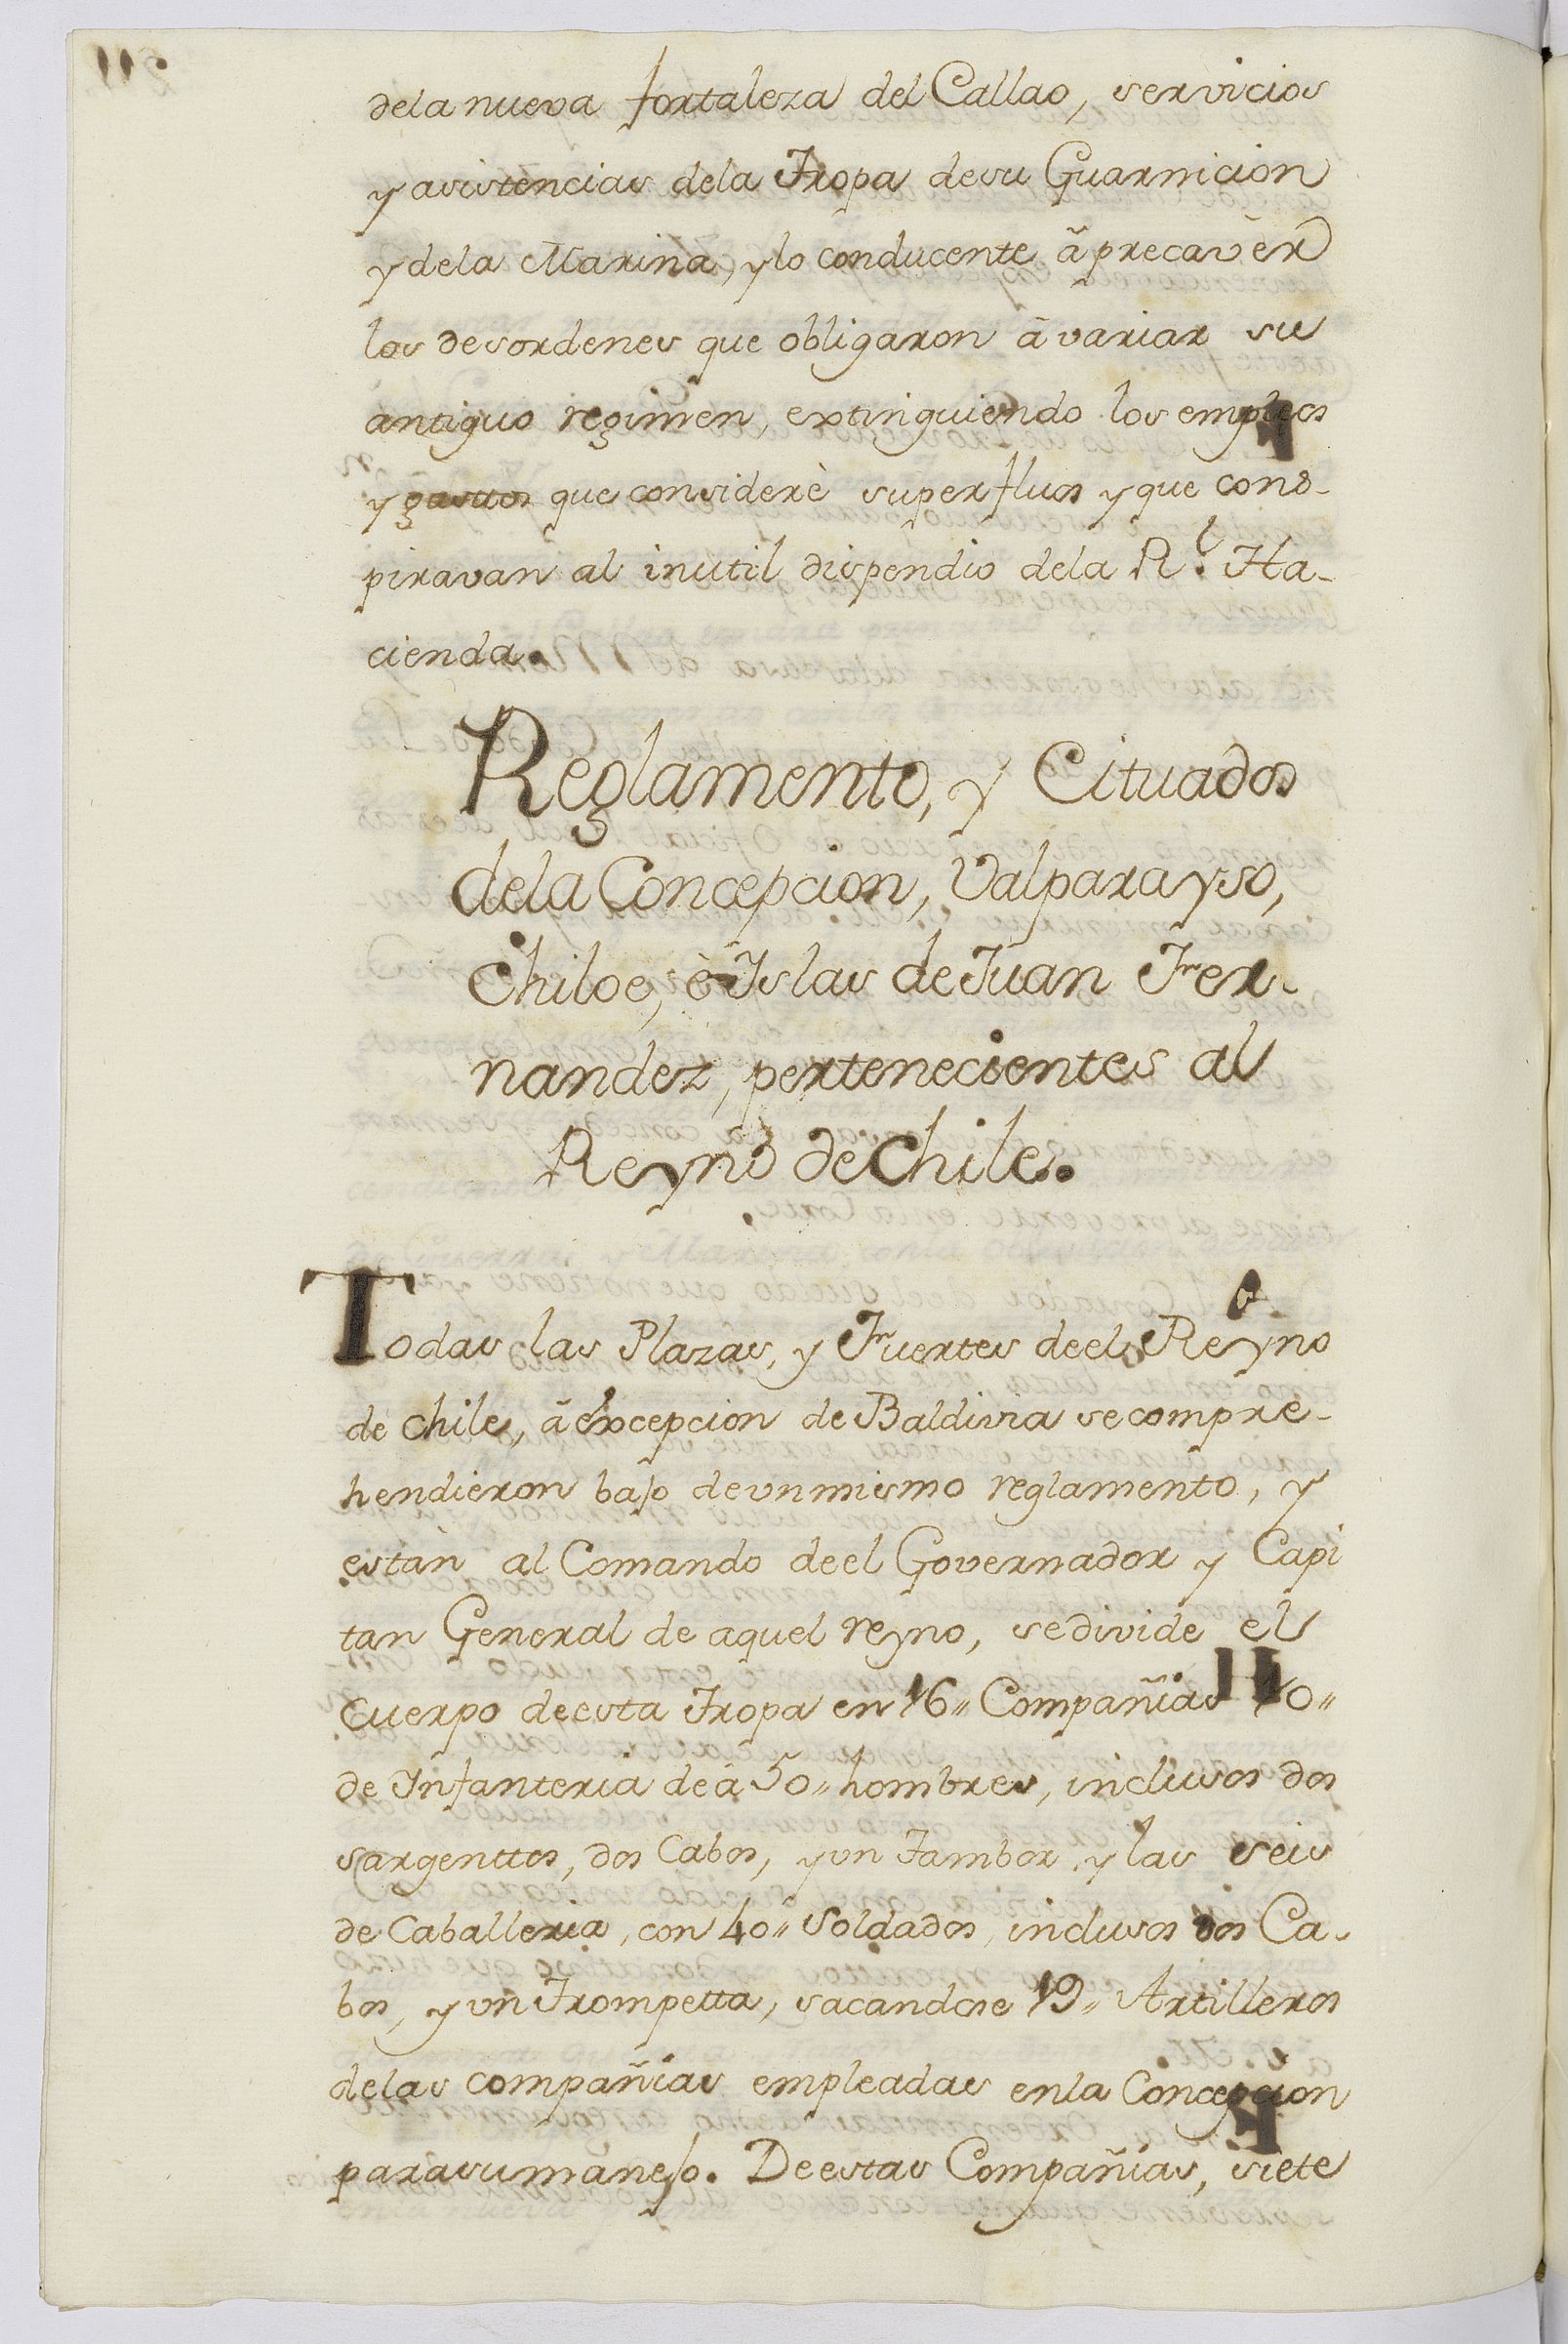 dela nueva fortaleza del Callao, servicios
y asistencias dela Tropa desu Guarnicion
y dela Marina, y lo conducente à precavèr
los desordenes que obligaron à variar su
antiguo regimen, extinguiendo los empleos
y gasttos que considerè superfluos y que cons-
piravan al inutil dispendio dela Rl. Ha-
cienda.
Reglamento, y Cituados
dela Concepcion, Valparayso,
Chiloe, è Yslas de Juan Fer-
nandez, pertenecientes al
Reyno de Chile.
Todas las Plazas, y Fuertes deel Reyno
de Chile, à excepcion de Baldivia se compre-
hendieron bajo de un mismo reglamento, y
estàn al Comando deel Governador y Capi
tan General de aquel reyno, se divide el
cuerpo deesta Tropa en 16" Compañias 10"
de Ynfanteria de à 50" hombres, inclusos dos
sargenttos, dos Cabos, y un Tambor, y las seis
de Caballeria, con 40" Soldados, inclusos dos Ca-
bos, y un Trompetta, sacandose 19" Artilleros
delas compañias empleadas enla Concepcion
para su manejo. De estas Compañias, siete